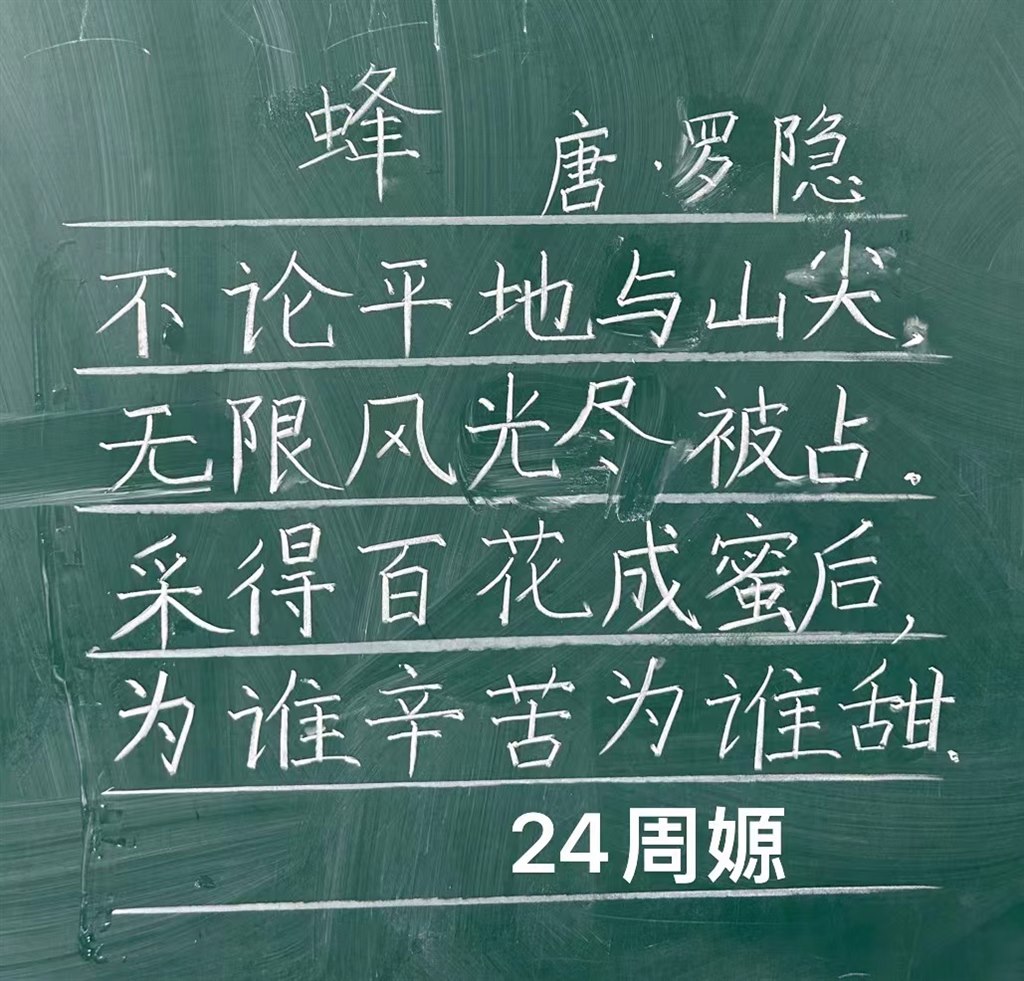 蜂 唐·罗隐
不论平地与山尖,
无限风光尽被占.
采得百花成蜜后,
为谁辛苦为谁甜.
24周嫄